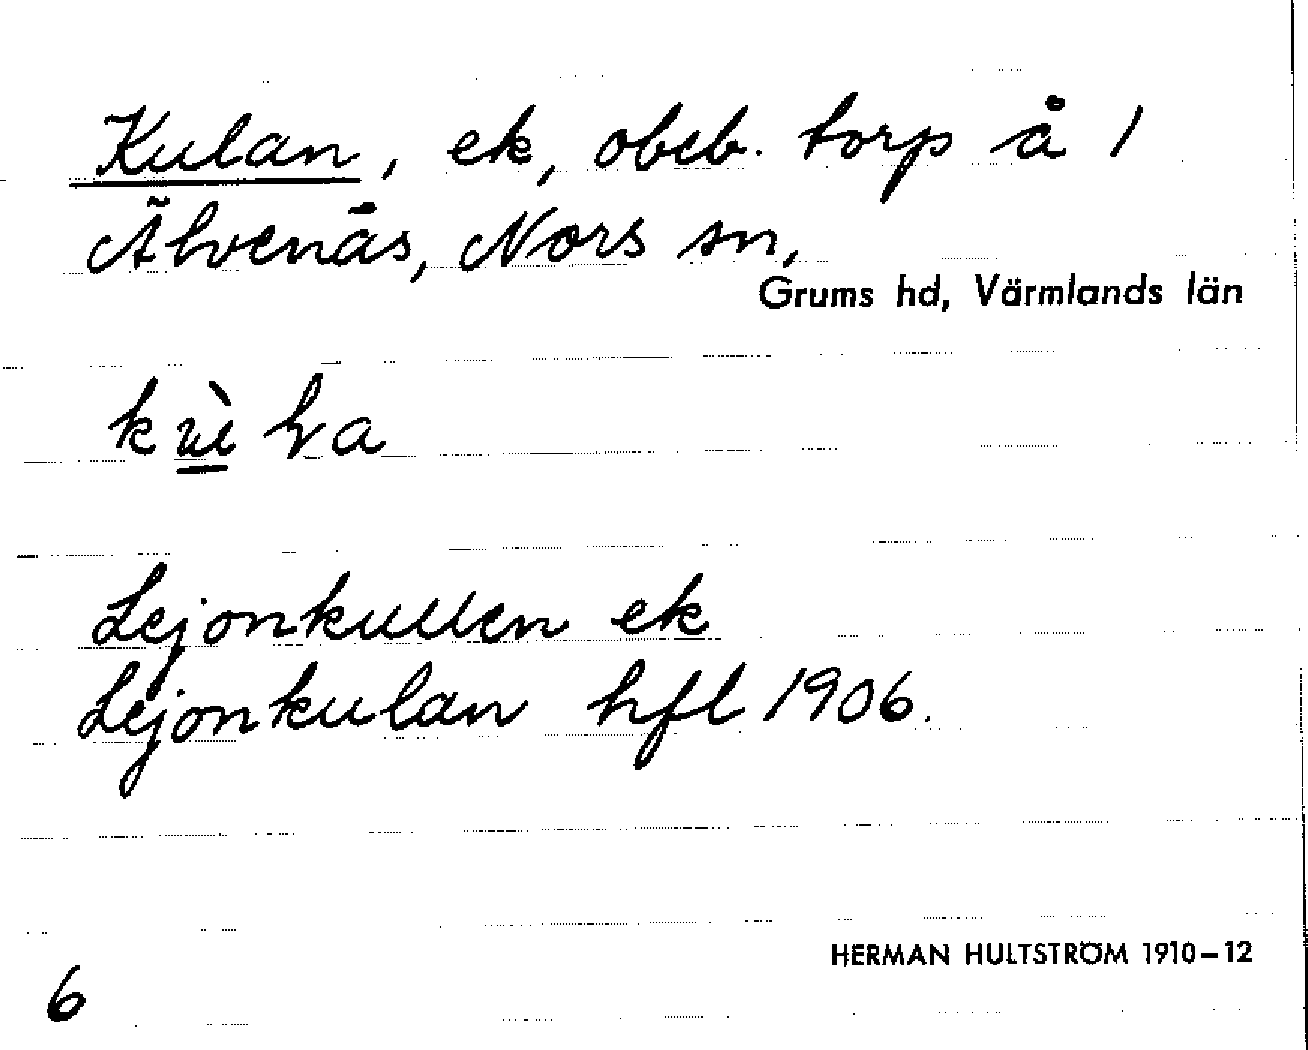 Kulan, ek, obeb. torp å 1
Älvenäs, Nors sn,
Grums hd, Värmlands län
Lejonkullen ek
Lejonkulan hfl 1906.
HERMAN HULTSTRÖM 1910–12
6